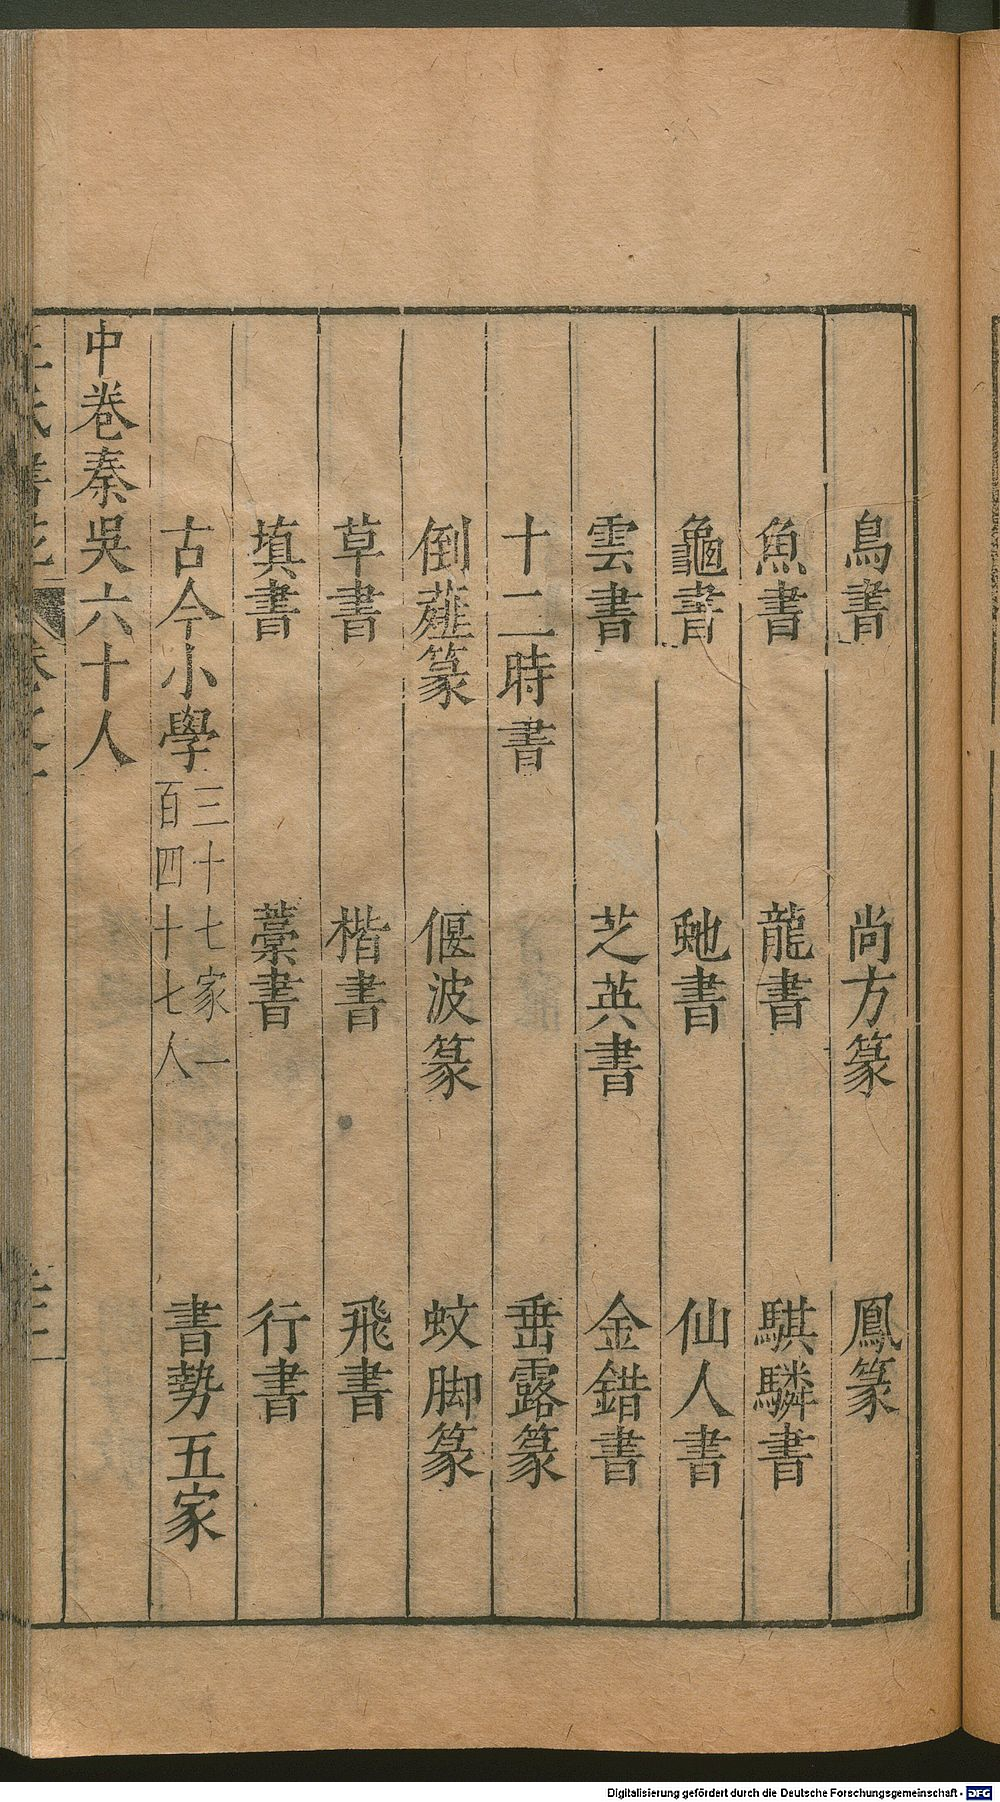 鳥書　尚方篆　鳳篆
魚書　龍書　騏驎書
龜書　虵書　仙人書
雲書　芝英書　金錯書
十二時書　垂露篆
倒薤篆　偃波篆　蚊脚篆
草書　楷書　飛書
填書　藁書　行書
古今小學三十七家一百四十七人　書勢五家
中卷秦吳六十人
Digitalisierung gefördert durch die Deutsche Forschungsgemeinschaft - DFG